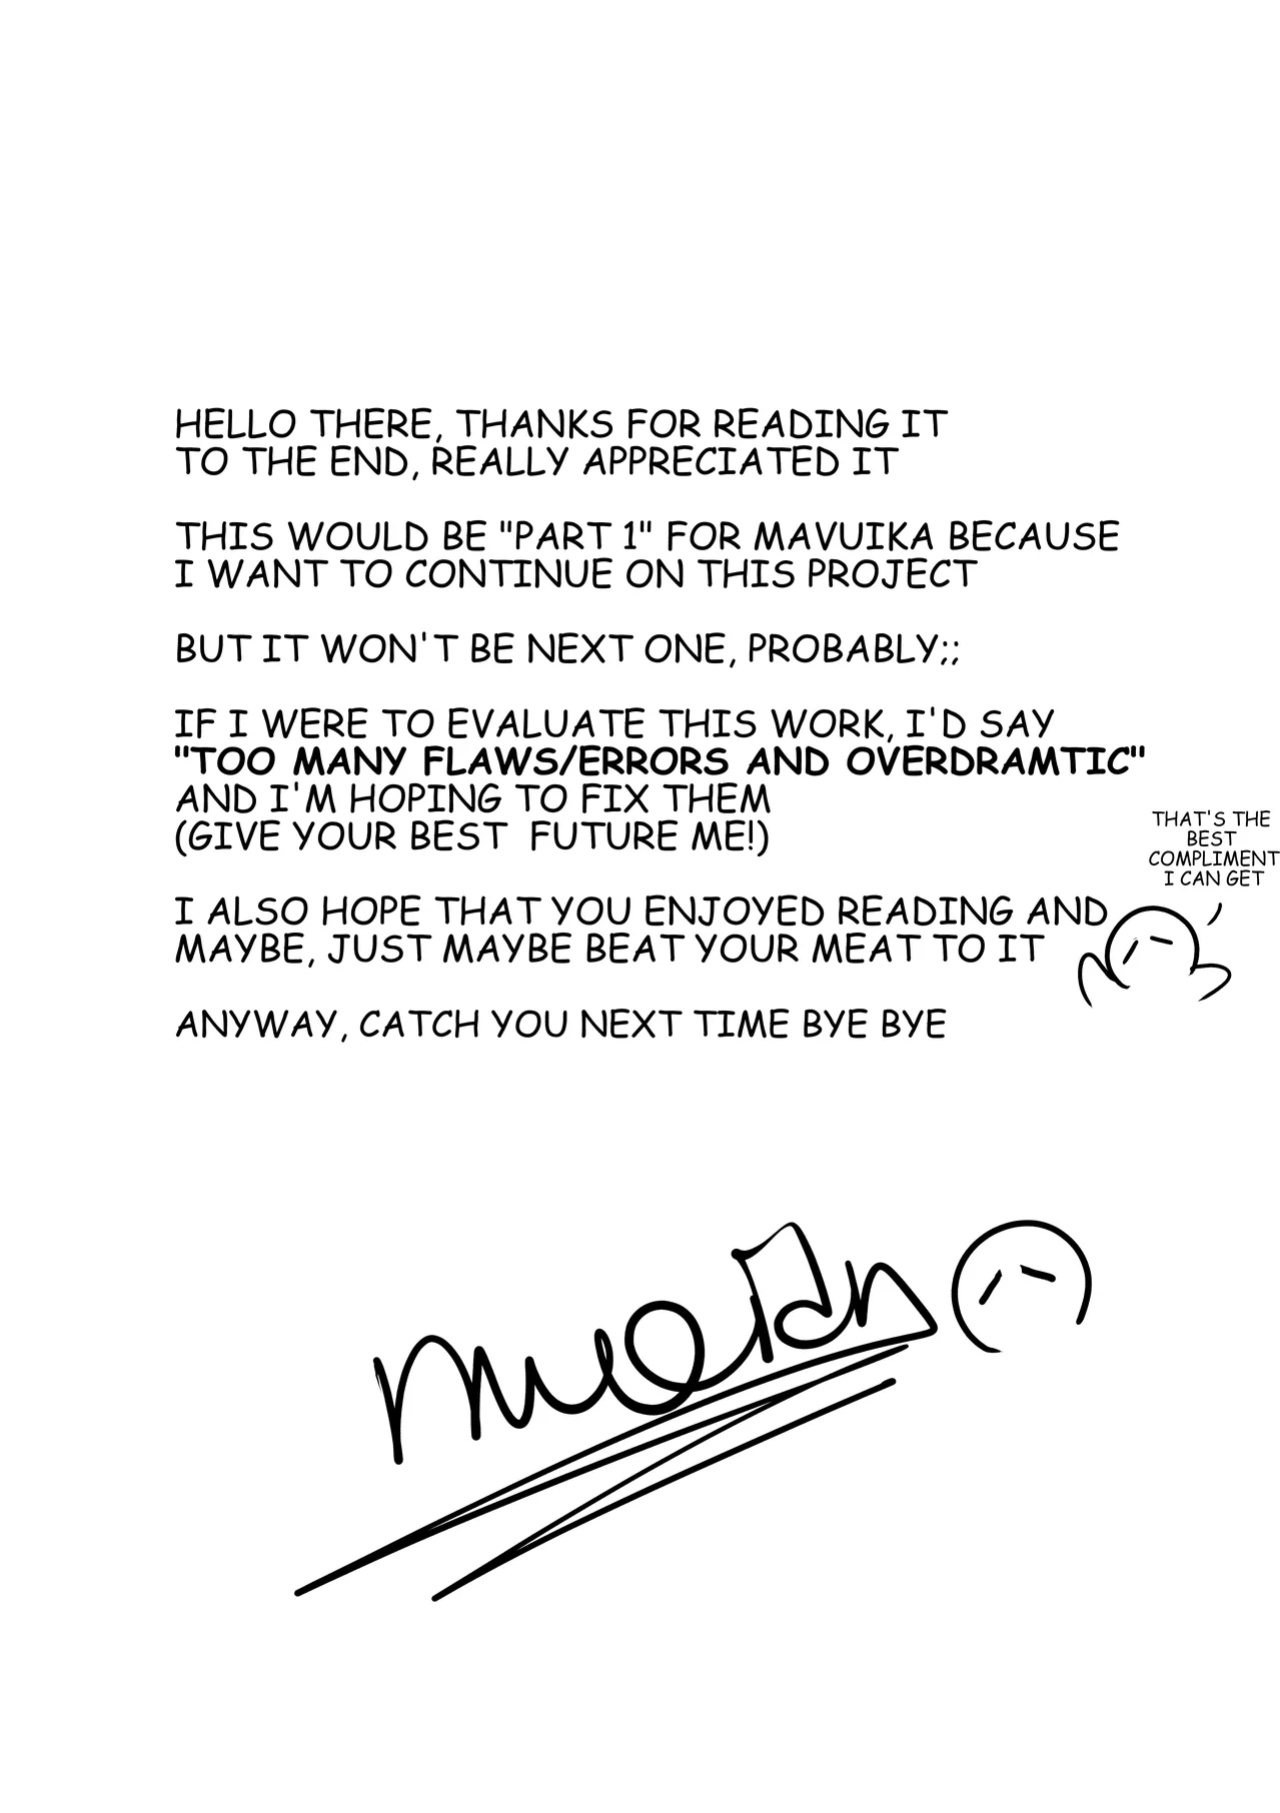 HELLO THERE, THANKS FOR READING IT
TO THE END, REALLY APPRECIATED IT
THIS WOULD BE "PART 1" FOR MAVUIKA BECAUSE
I WANT TO CONTINUE ON THIS PROJECT
BUT IT WON'T BE NEXT ONE, PROBABLY;;
IF I WERE TO EVALUATE THIS WORK, I'D SAY
"TOO MANY FLAWS/ERRORS AND OVERDRAMTIC"
AND I'M HOPING TO FIX THEM
(GIVE YOUR BEST  FUTURE ME!)
THAT'S THE
BEST
COMPLIMENT
I CAN GET
I ALSO HOPE THAT YOU ENJOYED READING AND
MAYBE, JUST MAYBE BEAT YOUR MEAT TO IT
ANYWAY, CATCH YOU NEXT TIME BYE BYE